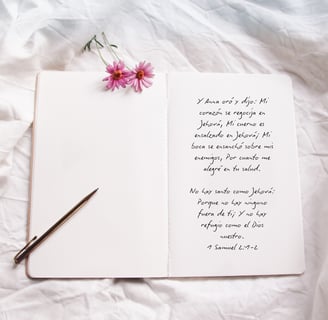 Y Ana oró y dijo: Mi
corazón se regocija en
Jehová, Mi cuerno es
ensalzado en Jehová; Mi
boca se ensanchó sobre mis
enemigos, Por cuanto me
alegré en tu salud.
No hay santo como Jehová:
Porque no hay ninguno
fuera de ti; Y no hay
refugio como el Dios
nuestro.
1 Samuel 2:1-2